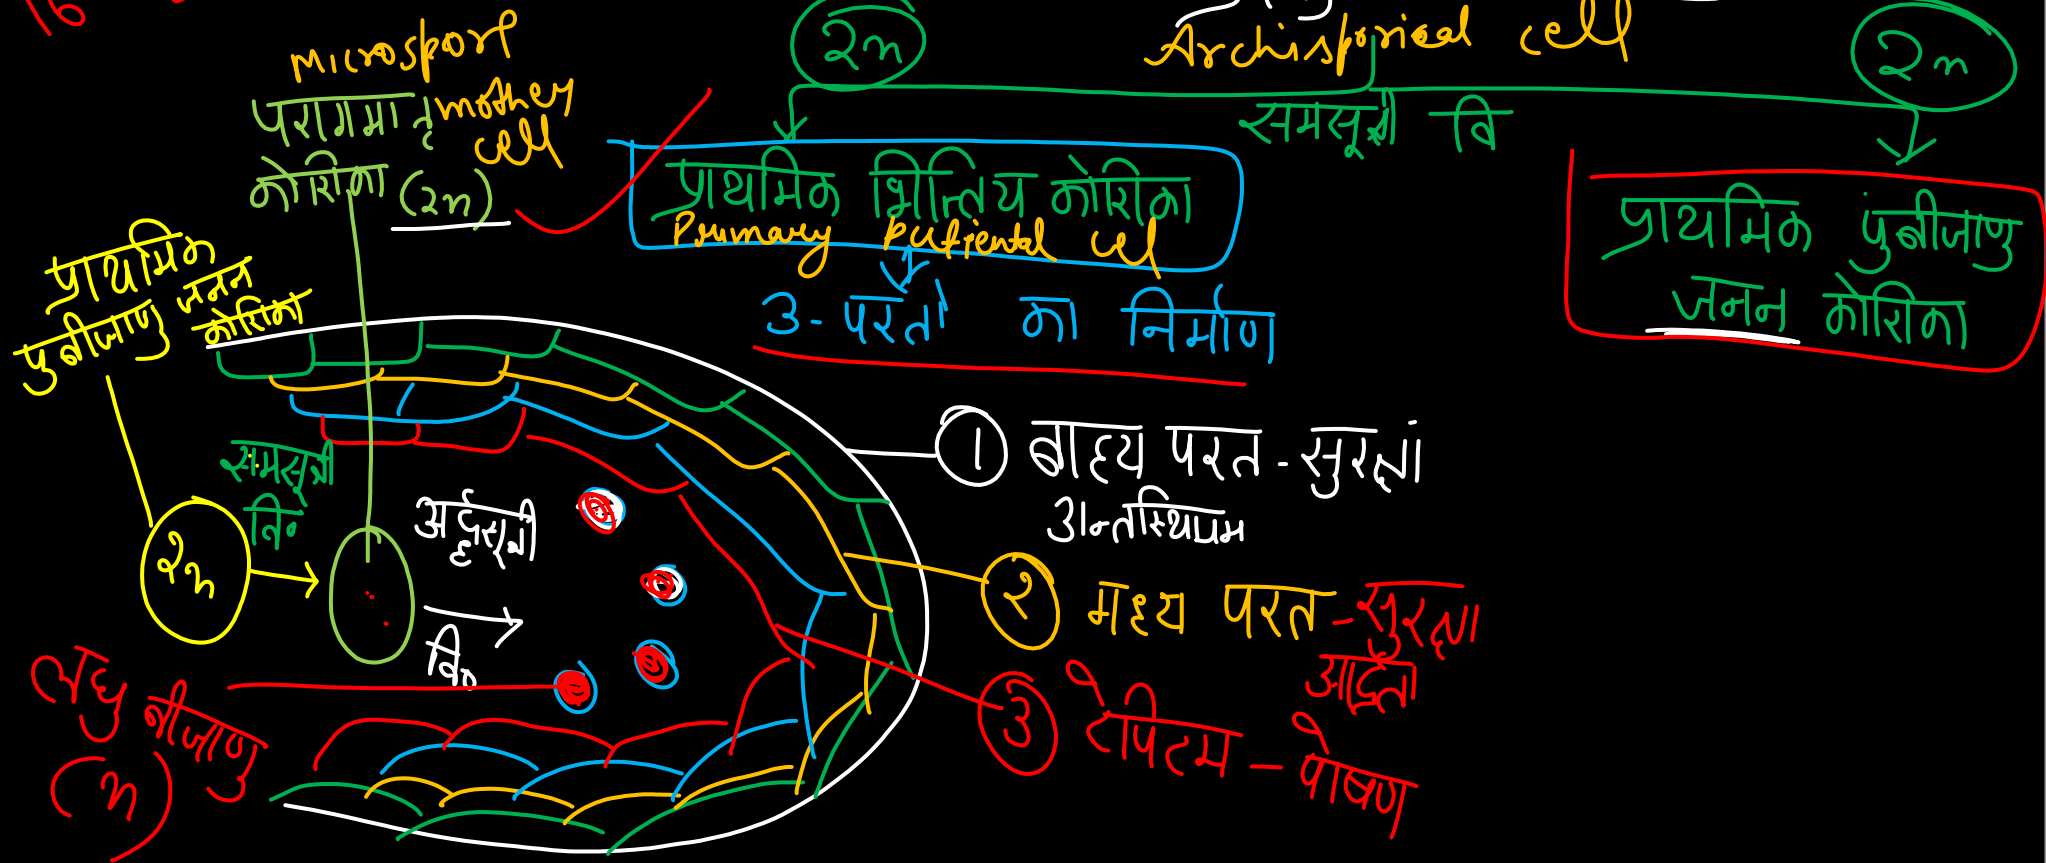 16
Microsport
mother
cell
परागमातृ
कोशिका (2n)
2n
Archisporical cell
2n
समसूत्री वि
प्राथमिक भित्तिय कोशिका
Primary
cel
3-परतो का निर्माण
प्राथमिक पुंबीजाणु
जनन कोशिका
प्राथमिक
पुंबीजाणु जनन
कोशिका
समसूत्री
वि०
2n
अर्द्धसूत्री
वि०
लघु बीजाणु
(n)
① बाह्य परत - सुरक्षा
अन्तस्थियम
② मध्य परत - सुरक्षा
आर्द्रता
③ टेपिटम - पोषण